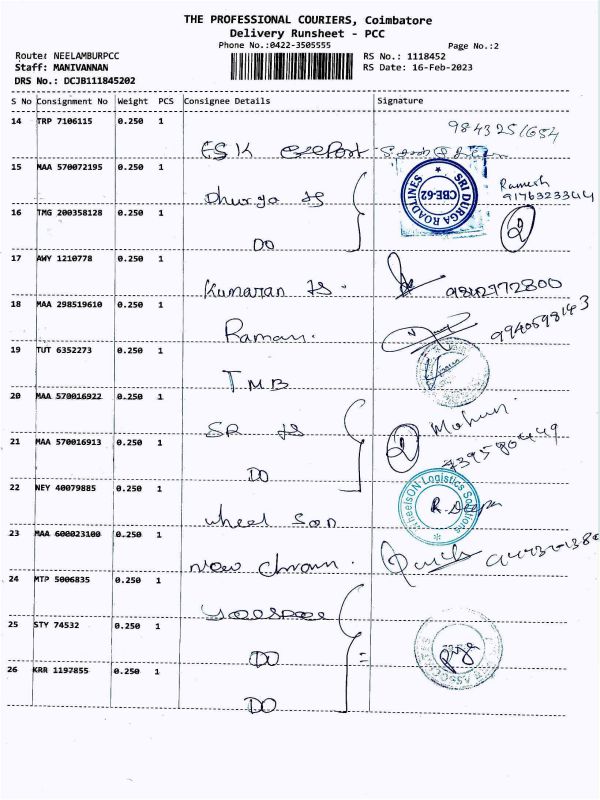 THE PROFESSIONAL COURIERS, Coimbatore
Delivery Runsheet - PCC
Phone No.:0422-3505555
Page No.:2
Route: NEELAMBURPCC
RS No.: 1118452
Staff: MANIVANNAN
RS Date: 16-Feb-2023
DRS No.: DCJB111845202
S No Consignment No Weight PCS Consignee Details Signature
14 TRP 7106115 0.250 1
9843251654
ESK
15 MAA 570072195 0.250 1
Dhurga TS
SRI DURGA ROADLINES
CBE-62
Ramesh
9176323344
16 TMG 200358128 0.250 1
DO
2
17 AWY 1210778 0.250 1
Kumaran TS.
9842772800
18 MAA 298519610 0.250 1
Raman.
9940598143
19 TUT 6352273 0.250 1
TMB
20 MAA 570016922 0.250 1
SR TS
2
Mohan.
21 MAA 570016913 0.250 1
DO
7395780449
22 NEY 40079885 0.250 1
wheel son
WheelsON Logistics Solutions
R. Deepa
23 MAA 600023100 0.250 1
New
24 MTP 5006835 0.250 1
25 STY 74532 0.250 1
DO
ASSOCIATES
26 KRR 1197855 0.250 1
DO